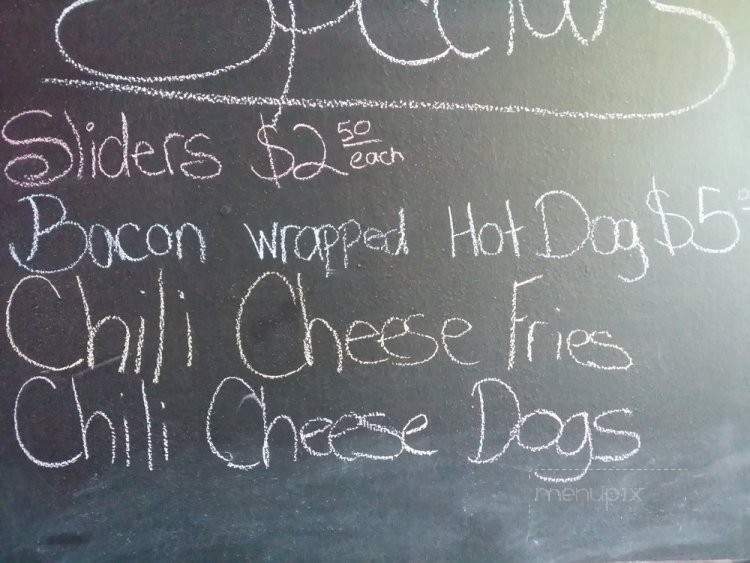 Specials
Sliders $2 50 each
Bacon wrapped Hot Dog $5
Chili Cheese Fries
Chili Cheese Dogs
menupix